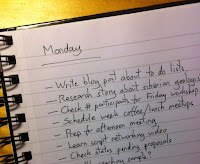 Monday
- Write blog post about to do lists
- Research story about siberian geologists
- Check # participants for Friday workshop
- Schedule week coffee/lunch meetups
- Prep for afternoon meeting
- Learn script networking video
- Check status pending proposals